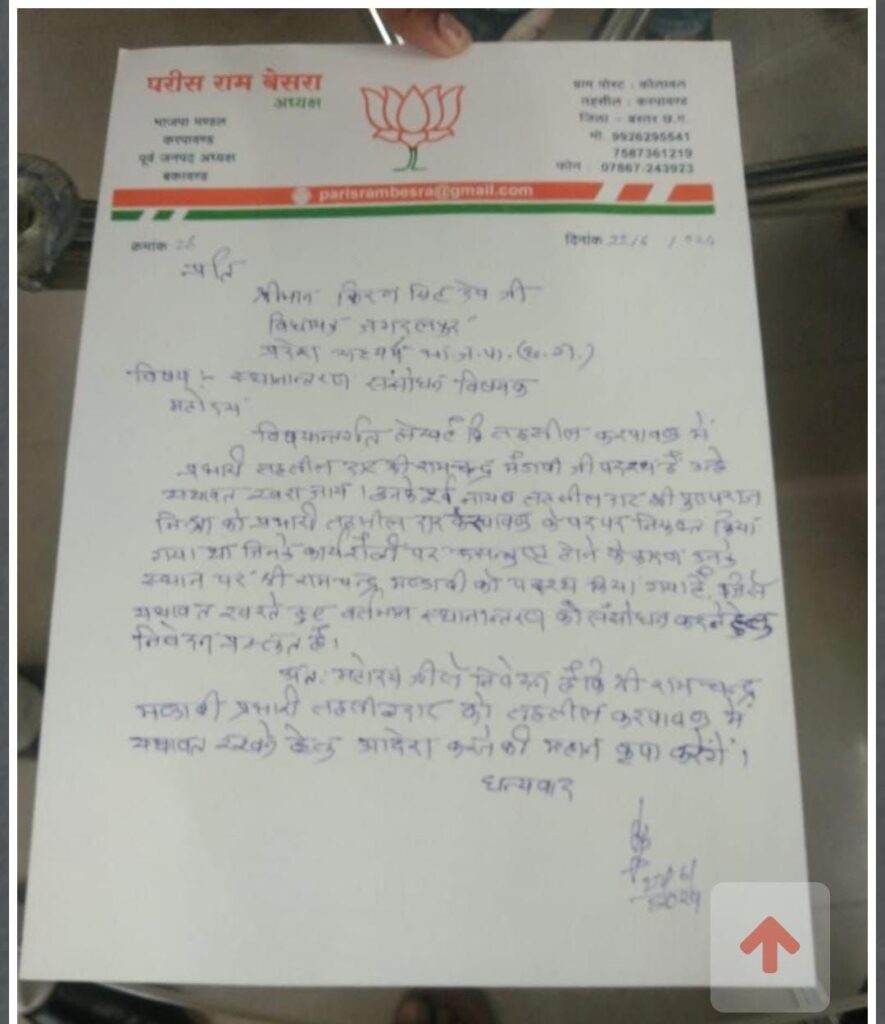 परीस राम बेसरा
अध्यक्ष
भाजपा मण्डल
करपावण्ड
पूर्व जनपद अध्यक्ष
बकावण्ड
ग्राम पोस्ट : कोलावल
तहसील : करपावण्ड
जिला - बस्तर छ.ग.
मो. 9926295541
7587361219
फोन : 07867-243923
parisrambesra@gmail.com
क्रमांक 28
दिनांक 22/6 / 2024
प्रति
श्रीमान किरण सिंह देव जी
विधायक जगदलपुर
प्रदेश अध्यक्ष भा.ज.पा. (छ.ग.)
विषय :- स्थानान्तरण संसोधन विषयक
महोदय
विषयान्तर्गत लेख है कि तहसील करपावण्ड में
प्रभारी तहसीलदार श्री रामचन्द्र मंडावी जी पदस्थ हैं उन्हें
यथावत रखा जाय। उनके पूर्व नायब तहसीलदार श्री
मिश्रा को प्रभारी तहसीलदार करपावण्ड के पद पर नियुक्त किया
गया था जिनके कार्यशैली पर असन्तुष्ट होने के कारण उनके
स्थान पर श्री रामचन्द्र मण्डावी को पदस्थ किया गया है, जिसे
यथावत रखते हुए वर्तमान स्थानान्तरण को संसोधन करने हेतु
निवेदन प्रस्तुत है।
अतः महोदय जी से निवेदन है कि श्री रामचन्द्र
मण्डावी प्रभारी तहसीलदार को तहसील करपावण्ड में
यथावत रखने हेतु आदेश करने की महान कृपा करेंगे।
धन्यवाद
22/6/
2024